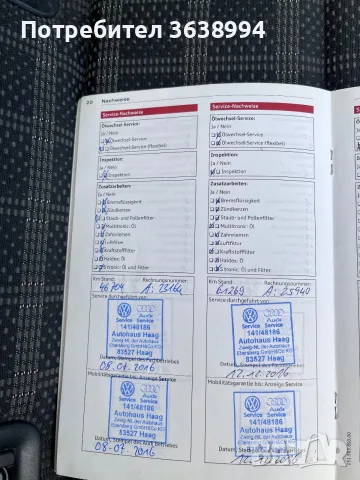 Потребител 3638994
20 Nachweise
Service-Nachweise
Ölwechsel-Service:
Ja / Nein
Ölwechsel-Service
Ölwechsel-Service (flexibel)
Inspektion:
Ja / Nein
Inspektion
Zusatzarbeiten:
Ja / Nein
Bremsflüssigkeit
Zündkerzen
Staub- und Pollenfilter
Multitronic: Öl
Zahnriemen
Luftfilter
Kraftstofffilter
Haldex: Öl
S tronic: Öl und Filter
Km Stand: Rechnungsnummer:
46704 A: 23169
Service durchgeführt von:
Audi
Service Service
141/48186
Autohaus Haag
Zweig-NL der Autohaus
Ebersberg GmbH&Co KG
83527 Haag
Datum, Stempel des Fachbetriebes
08.07.2016
Mobilitätsgarantie bis: Anzeige Service
Audi
Service Service
141/48186
Autohaus Haag
Zweig-NL der Autohaus
Ebersberg GmbH&Co KG
83527 Haag
Datum, Stempel des Audi Betriebes
08-07-2016
Service-Nachweise
Ölwechsel-Service:
Ja / Nein
Ölwechsel-Service
Ölwechsel-Service (flexibel)
Inspektion:
Ja / Nein
Inspektion
Zusatzarbeiten:
Ja / Nein
Bremsflüssigkeit
Zündkerzen
Staub- und Pollenfilter
Multitronic: Öl
Zahnriemen
Luftfilter
Kraftstofffilter
Haldex: Öl
S tronic: Öl und Filter
Km Stand: Rechnungsnummer:
61269 A: 25940
Service durchgeführt von:
Audi
Service Service
141/48186
Autohaus Haag
Zweig-NL der Autohaus
Ebersberg GmbH&Co KG
83527 Haag
Datum, Stempel des Fachbetriebes
12.10.2016
Mobilitätsgarantie bis: Anzeige Service
Audi
Service Service
141/48186
Autohaus Haag
Zweig-NL der Autohaus
Ebersberg GmbH&Co KG
83527 Haag